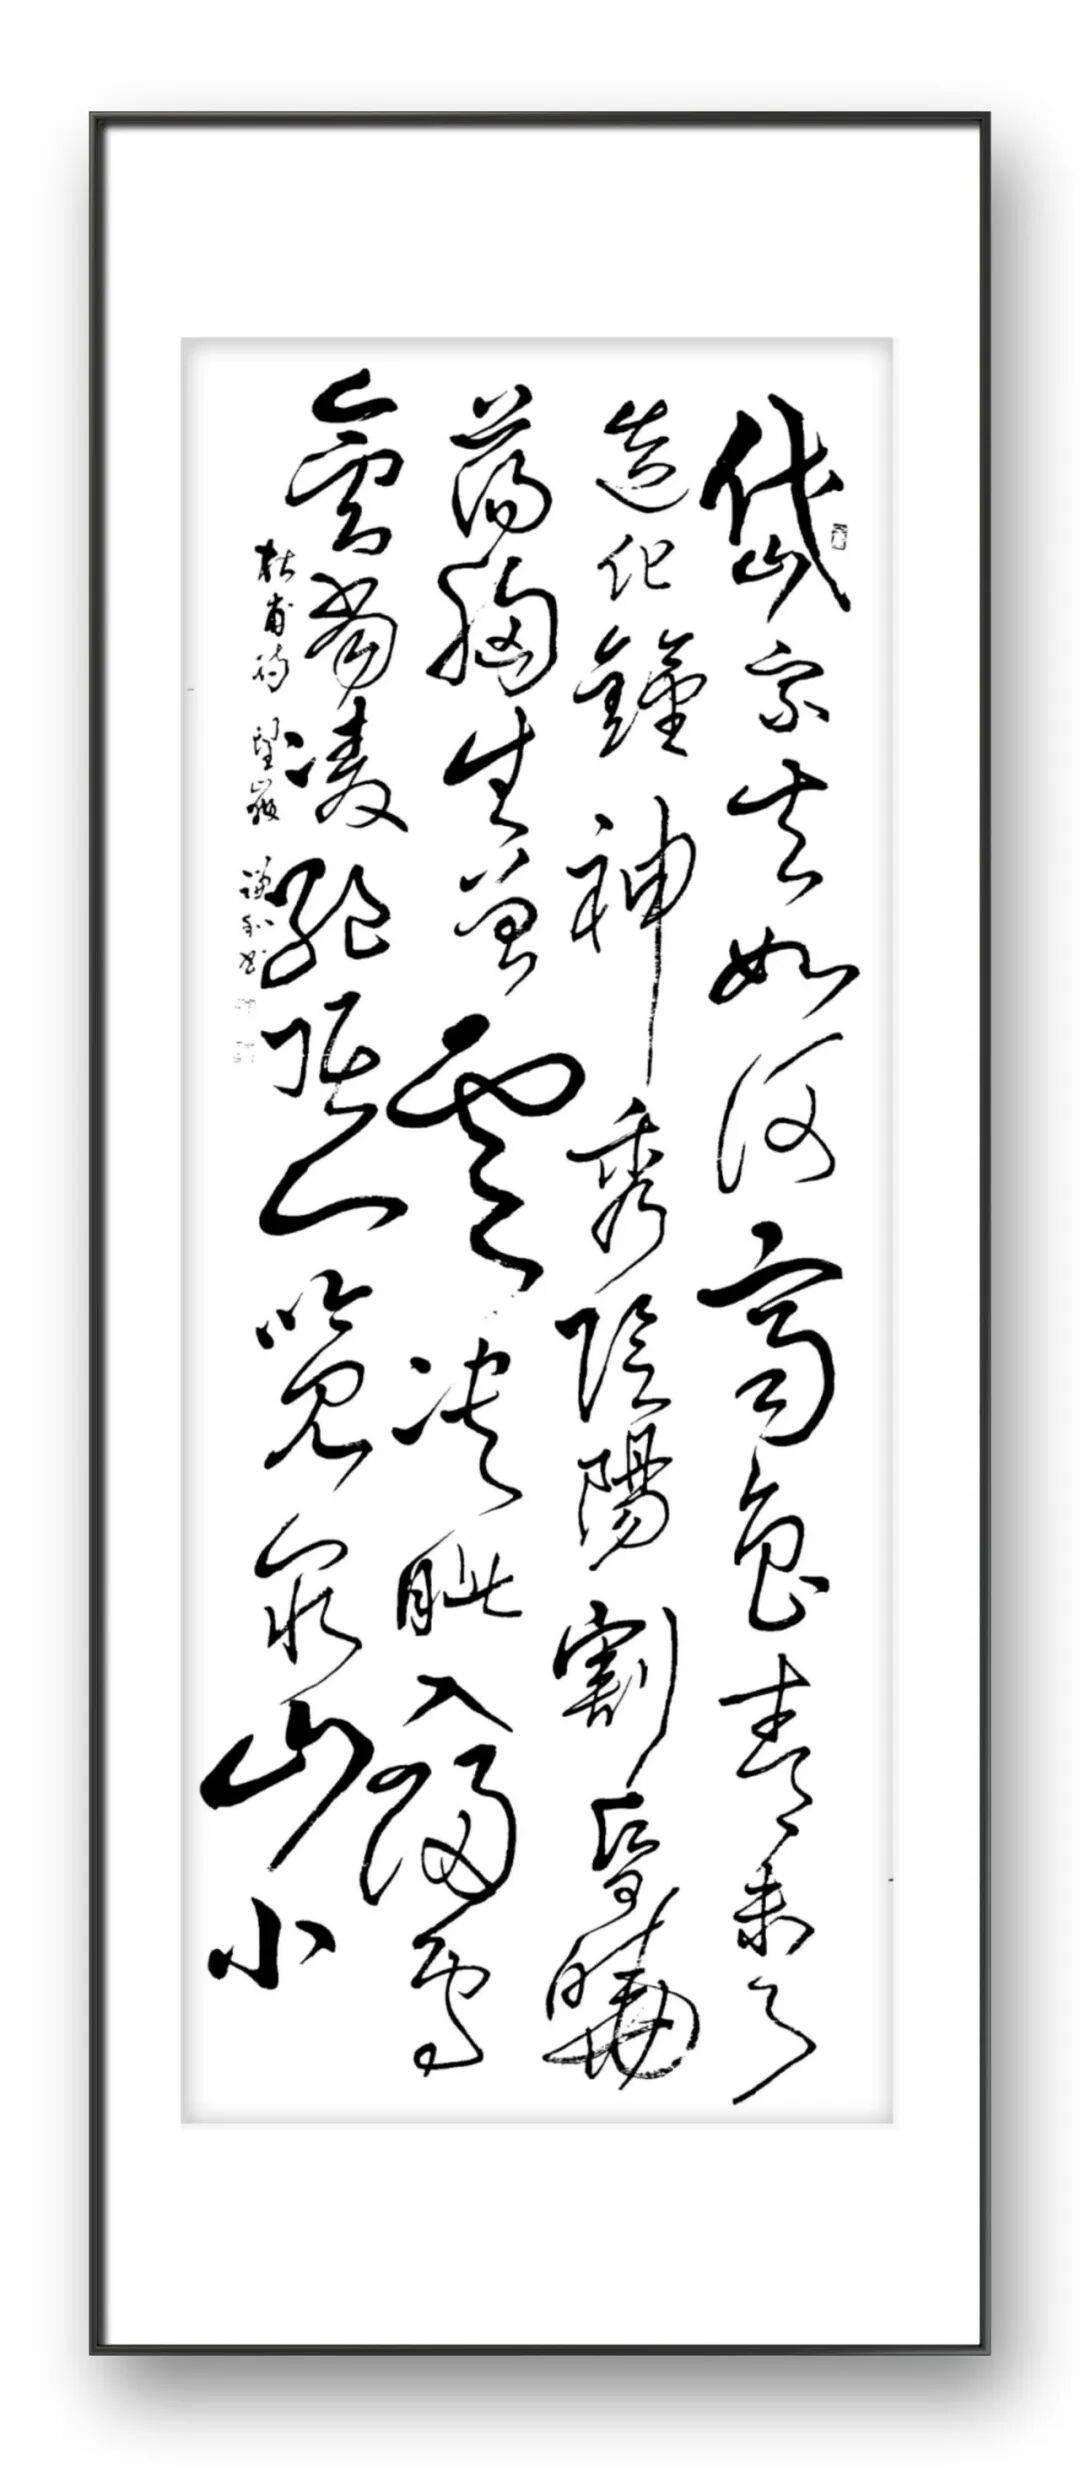 岱宗夫如何齊魯青未了
造化鐘神秀陰陽割昏曉
蕩胸生曾雲決眦入歸鳥
會當凌絕頂一覽眾山小
杜甫詩 望嶽 謙和書